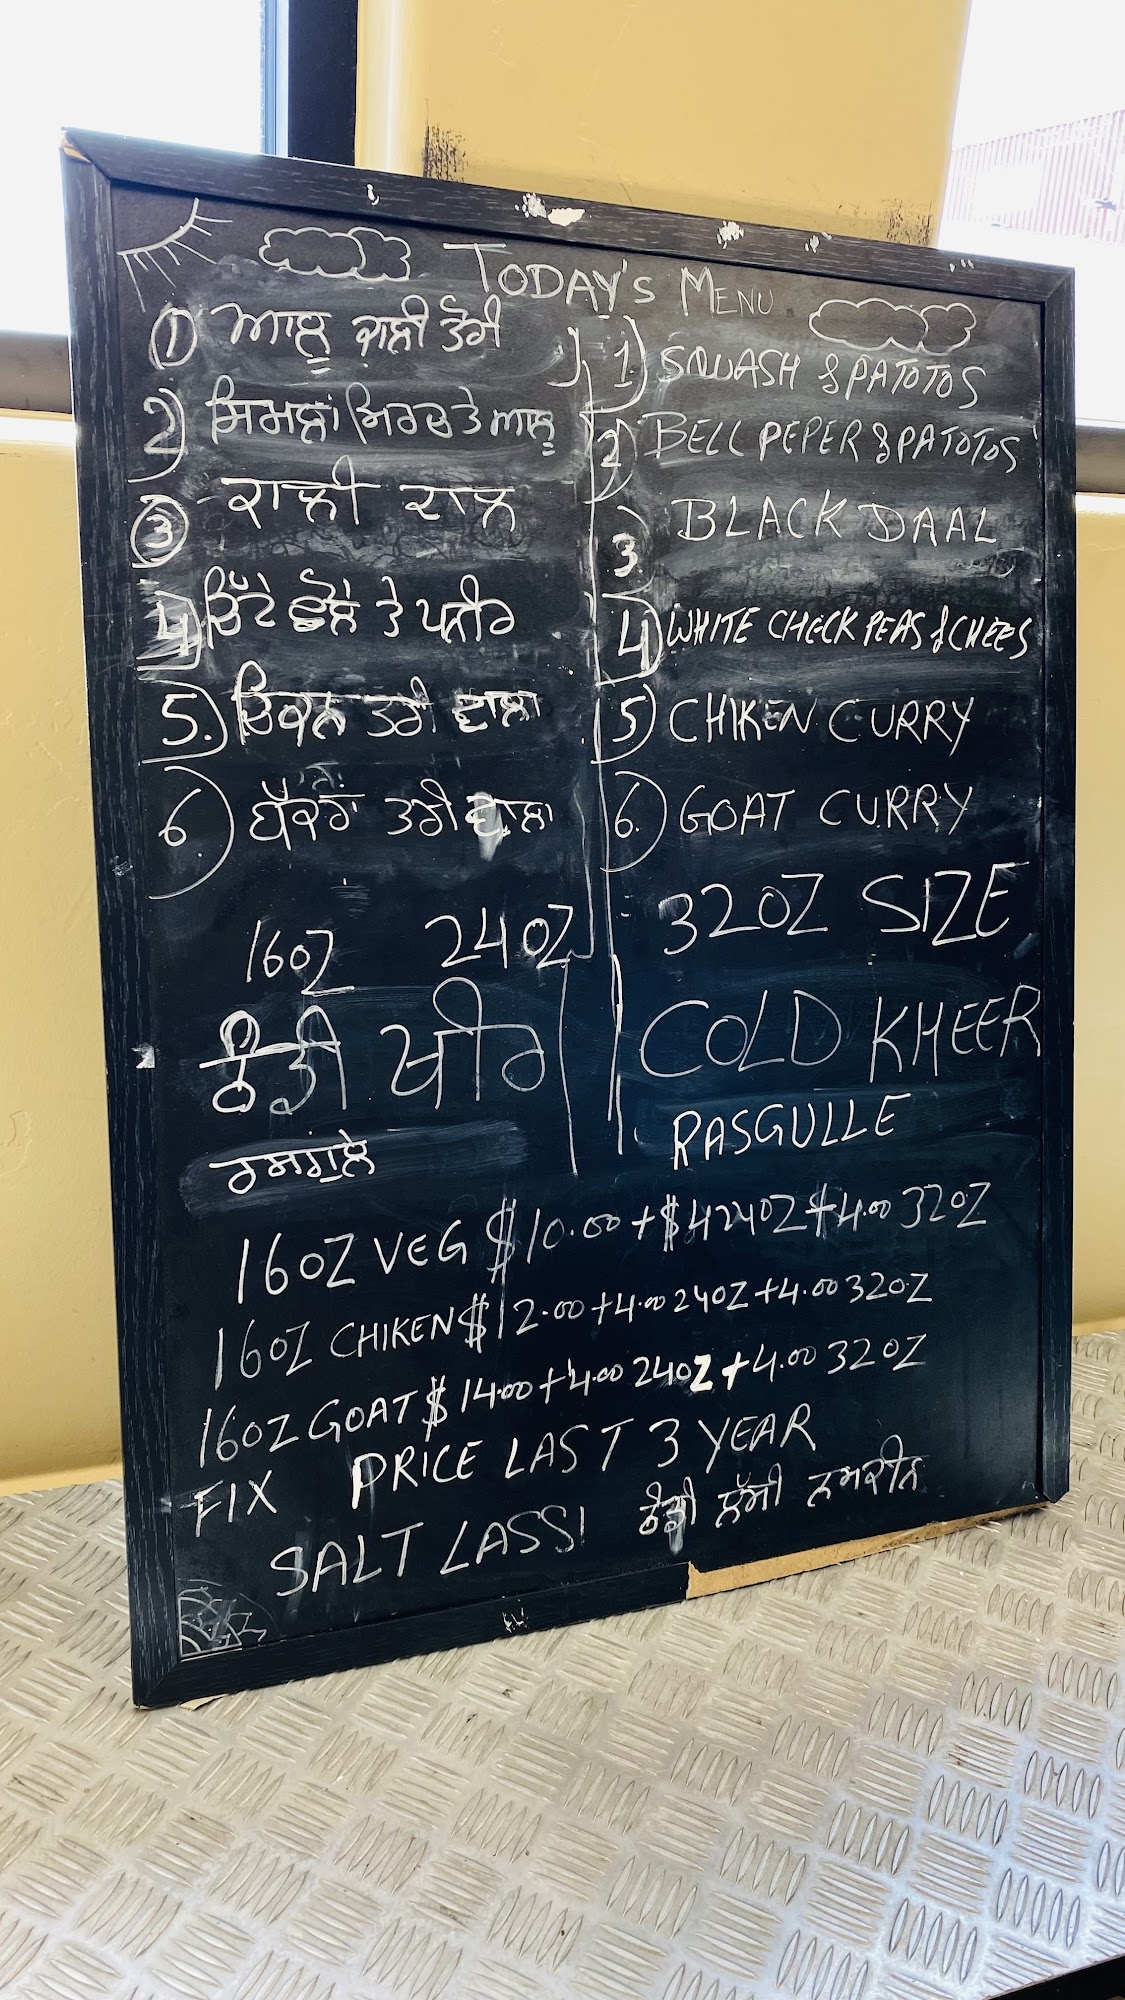 TODAY'S MENU
① ਆਲੂ ਕਾਲੀ ਤੋਰੀ
2) ਸਿਮਲਾਂ ਮਿਰਚ ਤੇ ਆਲੂ
③ ਕਾਲੀ ਦਾਲ
4) ਚਿੱਟੇ ਛੋਲੇ ਤੇ ਪਨੀਰ
5.) ਚਿਕਨ ਤਰੀ ਵਾਲਾ
6.) ਬੱਕਰਾ ਤਰੀ ਵਾਲਾ
1) SQUASH & PATOTOS
2) BELL PEPER & PATOTOS
3) BLACK DAAL
4) WHITE CHECK PEAS & CHEES
5) CHIKEN CURRY
6.) GOAT CURRY
16OZ 24OZ 32OZ SIZE
ਠੰਡੀ ਖੀਰ COLD KHEER
ਰਸਗੁਲੇ RASGULLE
16OZ VEG $10.00 + $4 24OZ $4.00 32OZ
16OZ CHIKEN $12.00 + 4.00 24OZ + 4.00 32OZ
16OZ GOAT $14.00 + 4.00 24OZ + 4.00 32OZ
FIX PRICE LAST 3 YEAR
SALT LASSI ਠੰਡੀ ਲੱਸੀ ਨਮਕੀਨ